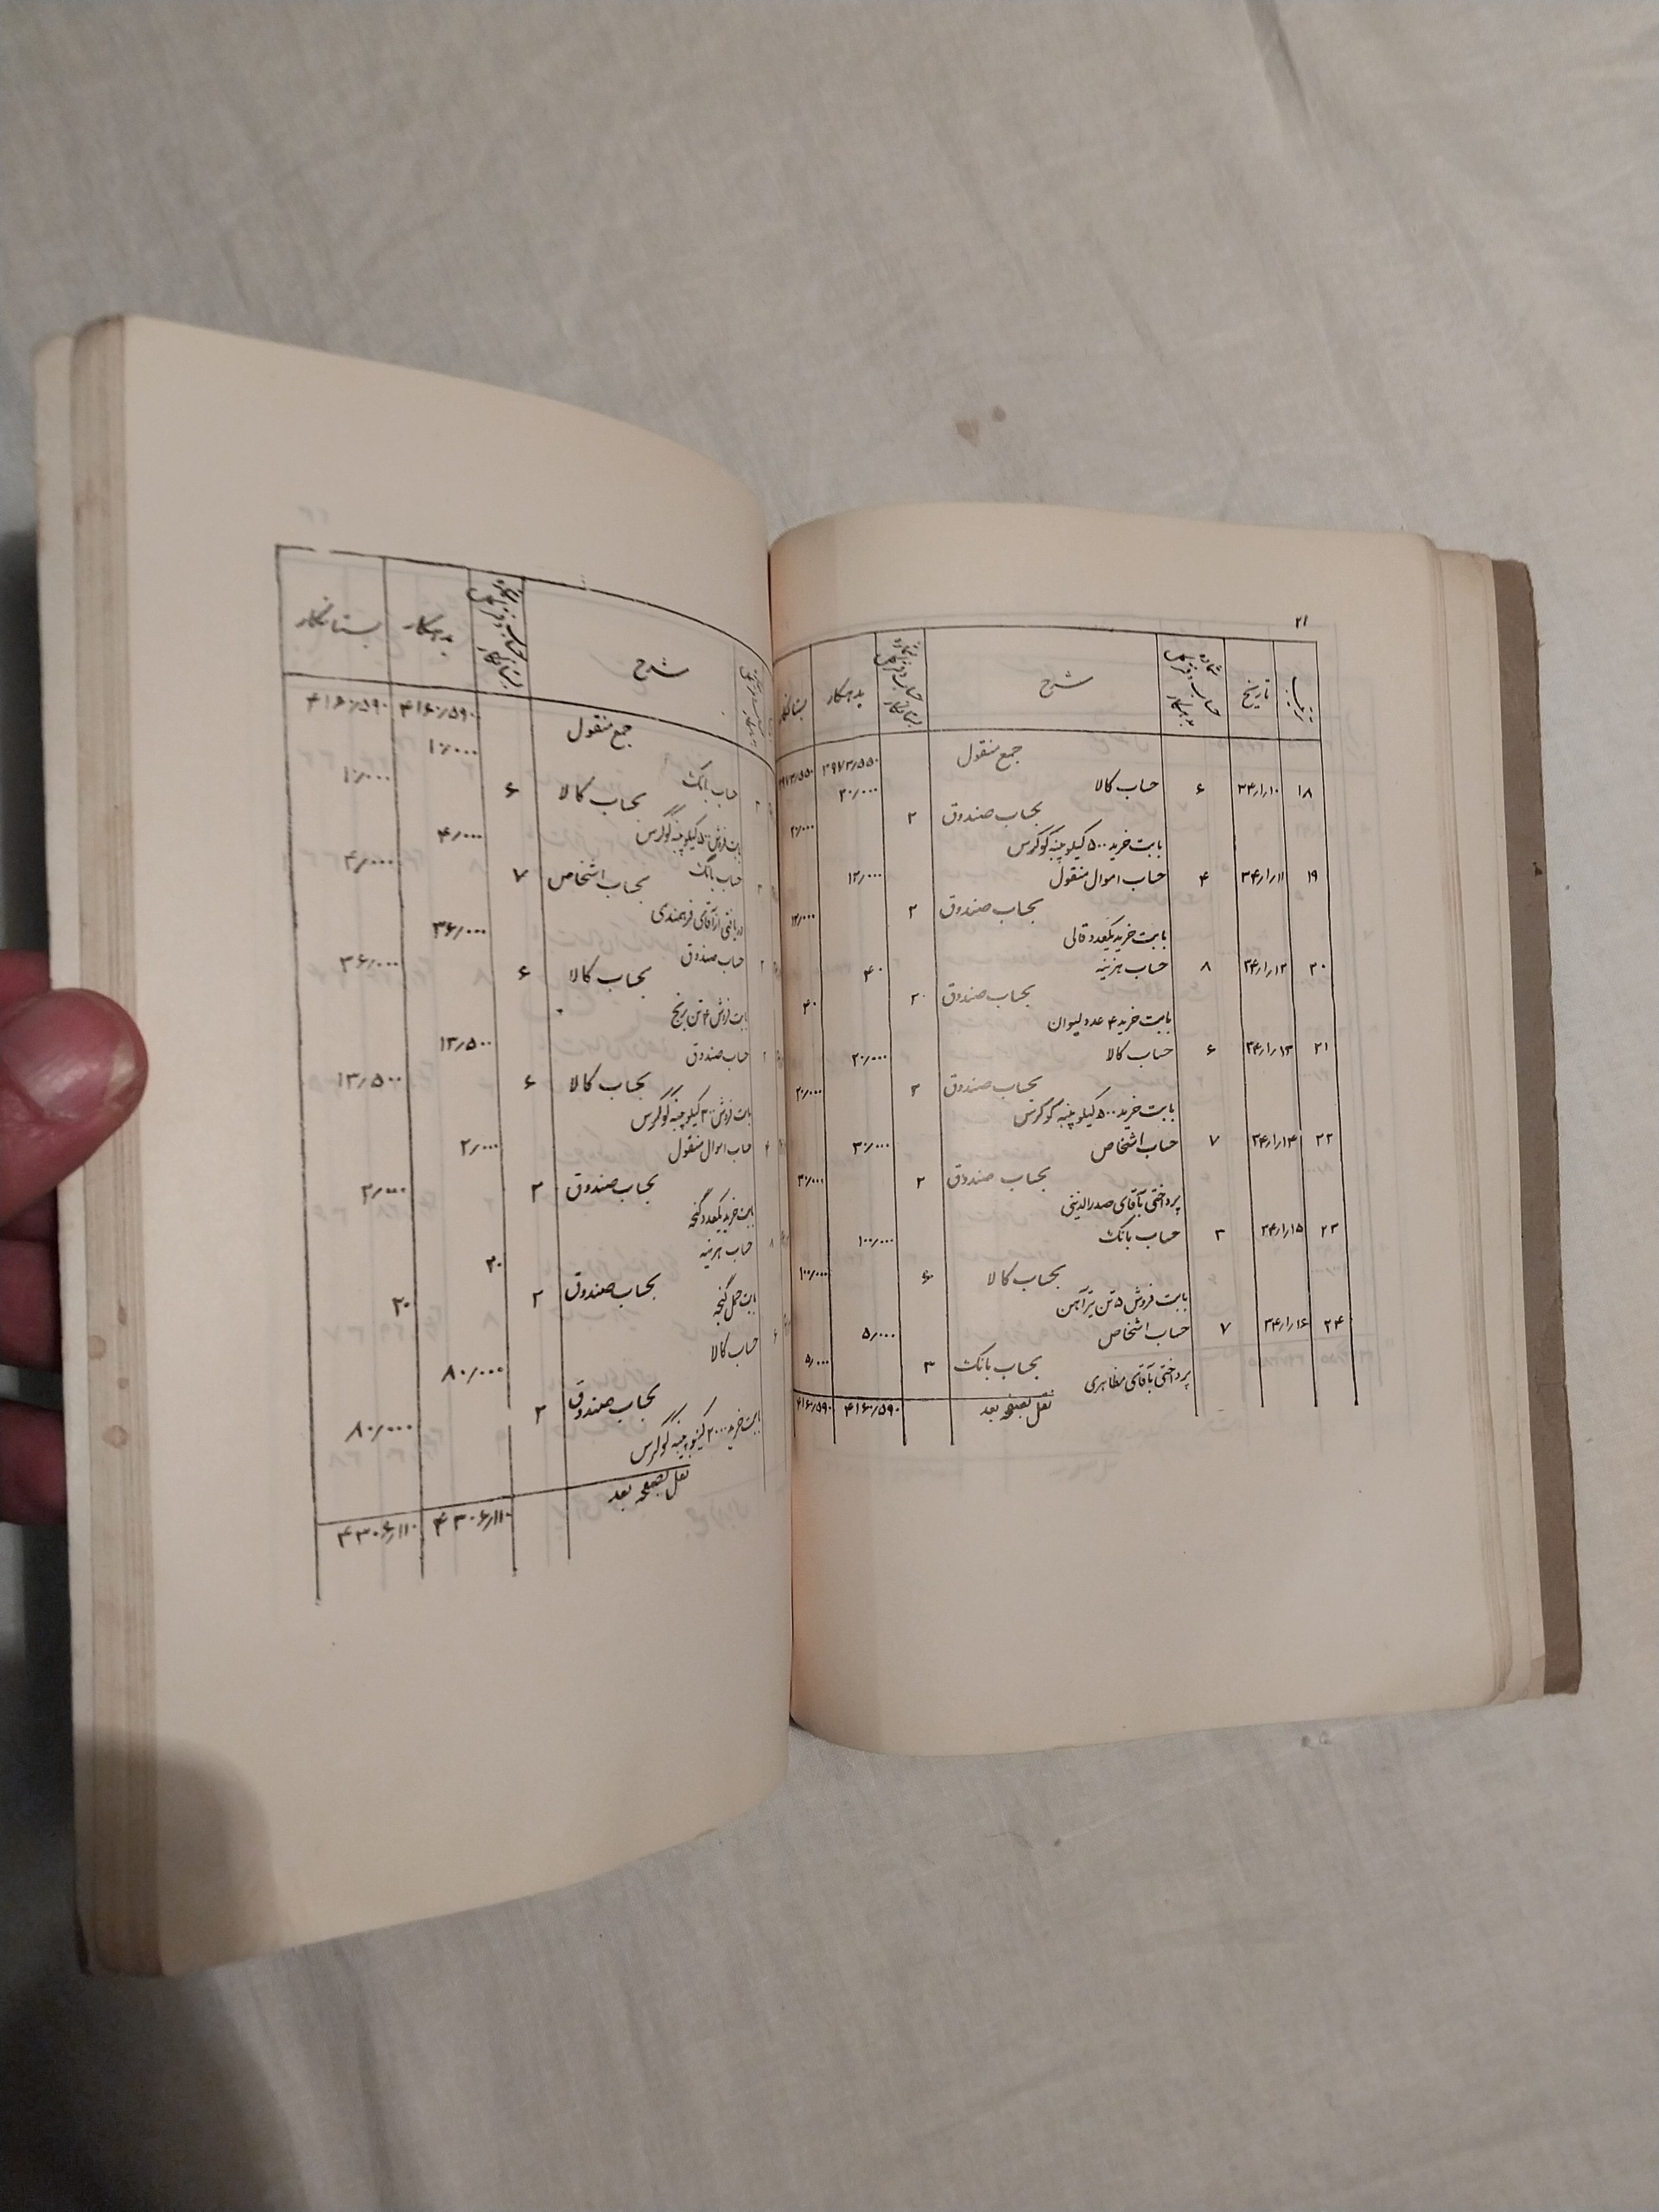 ۲۱
ترتیب تاریخ شماره حساب دفتر کل بدهکار شرح شماره حساب دفتر کل بستانکار بدهکار بستانکار
جمع منقول ۳۹۷۳٫۵۵۰ ۳۹۷۳٫۵۵۰
۱۸ ۳۴٫۱٫۱۰ ۶ حساب کالا ۲۰٫۰۰۰
بحساب صندوق ۲ ۲۰٫۰۰۰
بابت خرید ۵۰۰ کیلو پنبه کوکرس
۱۹ ۳۴٫۱٫۱۱ ۴ حساب اموال منقول ۱۲٫۰۰۰
بحساب صندوق ۲ ۱۲٫۰۰۰
بابت خرید یکعدد قالی
۲۰ ۳۴٫۱٫۱۲ ۸ حساب هزینه ۴۰
بحساب صندوق ۲ ۴۰
بابت خرید ۴ عدد لیوان
۲۱ ۳۴٫۱٫۱۳ ۶ حساب کالا ۲۰٫۰۰۰
بحساب صندوق ۲ ۲۰٫۰۰۰
بابت خرید ۵۰۰ کیلو پنبه کوکرس
۲۲ ۳۴٫۱٫۱۴ ۷ حساب اشخاص ۳۰٫۰۰۰
بحساب صندوق ۲ ۳۰٫۰۰۰
پرداختی بآقای صدرالدینی
۲۳ ۳۴٫۱٫۱۵ ۳ حساب بانک ۱۰۰٫۰۰۰
بحساب کالا ۶ ۱۰۰٫۰۰۰
بابت فروش ۵ تن تیرآهن
۲۴ ۳۴٫۱٫۱۶ ۷ حساب اشخاص ۵٫۰۰۰
بحساب بانک ۳ ۵٫۰۰۰
پرداختی بآقای مظاهری
نقل بصفحه بعد ۴۱۶۰٫۵۹۰ ۴۱۶۰٫۵۹۰
شرح شماره حساب دفتر کل بستانکار بدهکار بستانکار
جمع منقول ۴۱۶۰٫۵۹۰ ۴۱۶۰٫۵۹۰
حساب بانک ۱۰٫۰۰۰
بحساب کالا ۶ ۱۰٫۰۰۰
بابت فروش کیلو پنبه کوکرس
حساب بانک ۴٫۰۰۰
بحساب اشخاص ۷ ۴٫۰۰۰
دریافتی از آقای فرهمندی
حساب صندوق ۳۶٫۰۰۰
بحساب کالا ۶ ۳۶٫۰۰۰
بابت فروش ۴ تن برنج
حساب صندوق ۱۳٫۵۰۰
بحساب کالا ۶ ۱۳٫۵۰۰
بابت فروش ۳۰۰ کیلو پنبه کوکرس
حساب اموال منقول ۲٫۰۰۰
بحساب صندوق ۲ ۲٫۰۰۰
بابت خرید یکعدد گنجه
حساب هزینه ۲۰
بحساب صندوق ۲ ۲۰
بابت حمل گنجه
حساب کالا ۸۰٫۰۰۰
بحساب صندوق ۲ ۸۰٫۰۰۰
بابت خرید ۲۰۰۰ کیلو پنبه کوکرس
نقل بصفحه بعد ۴۳۰۶٫۱۱۰ ۴۳۰۶٫۱۱۰